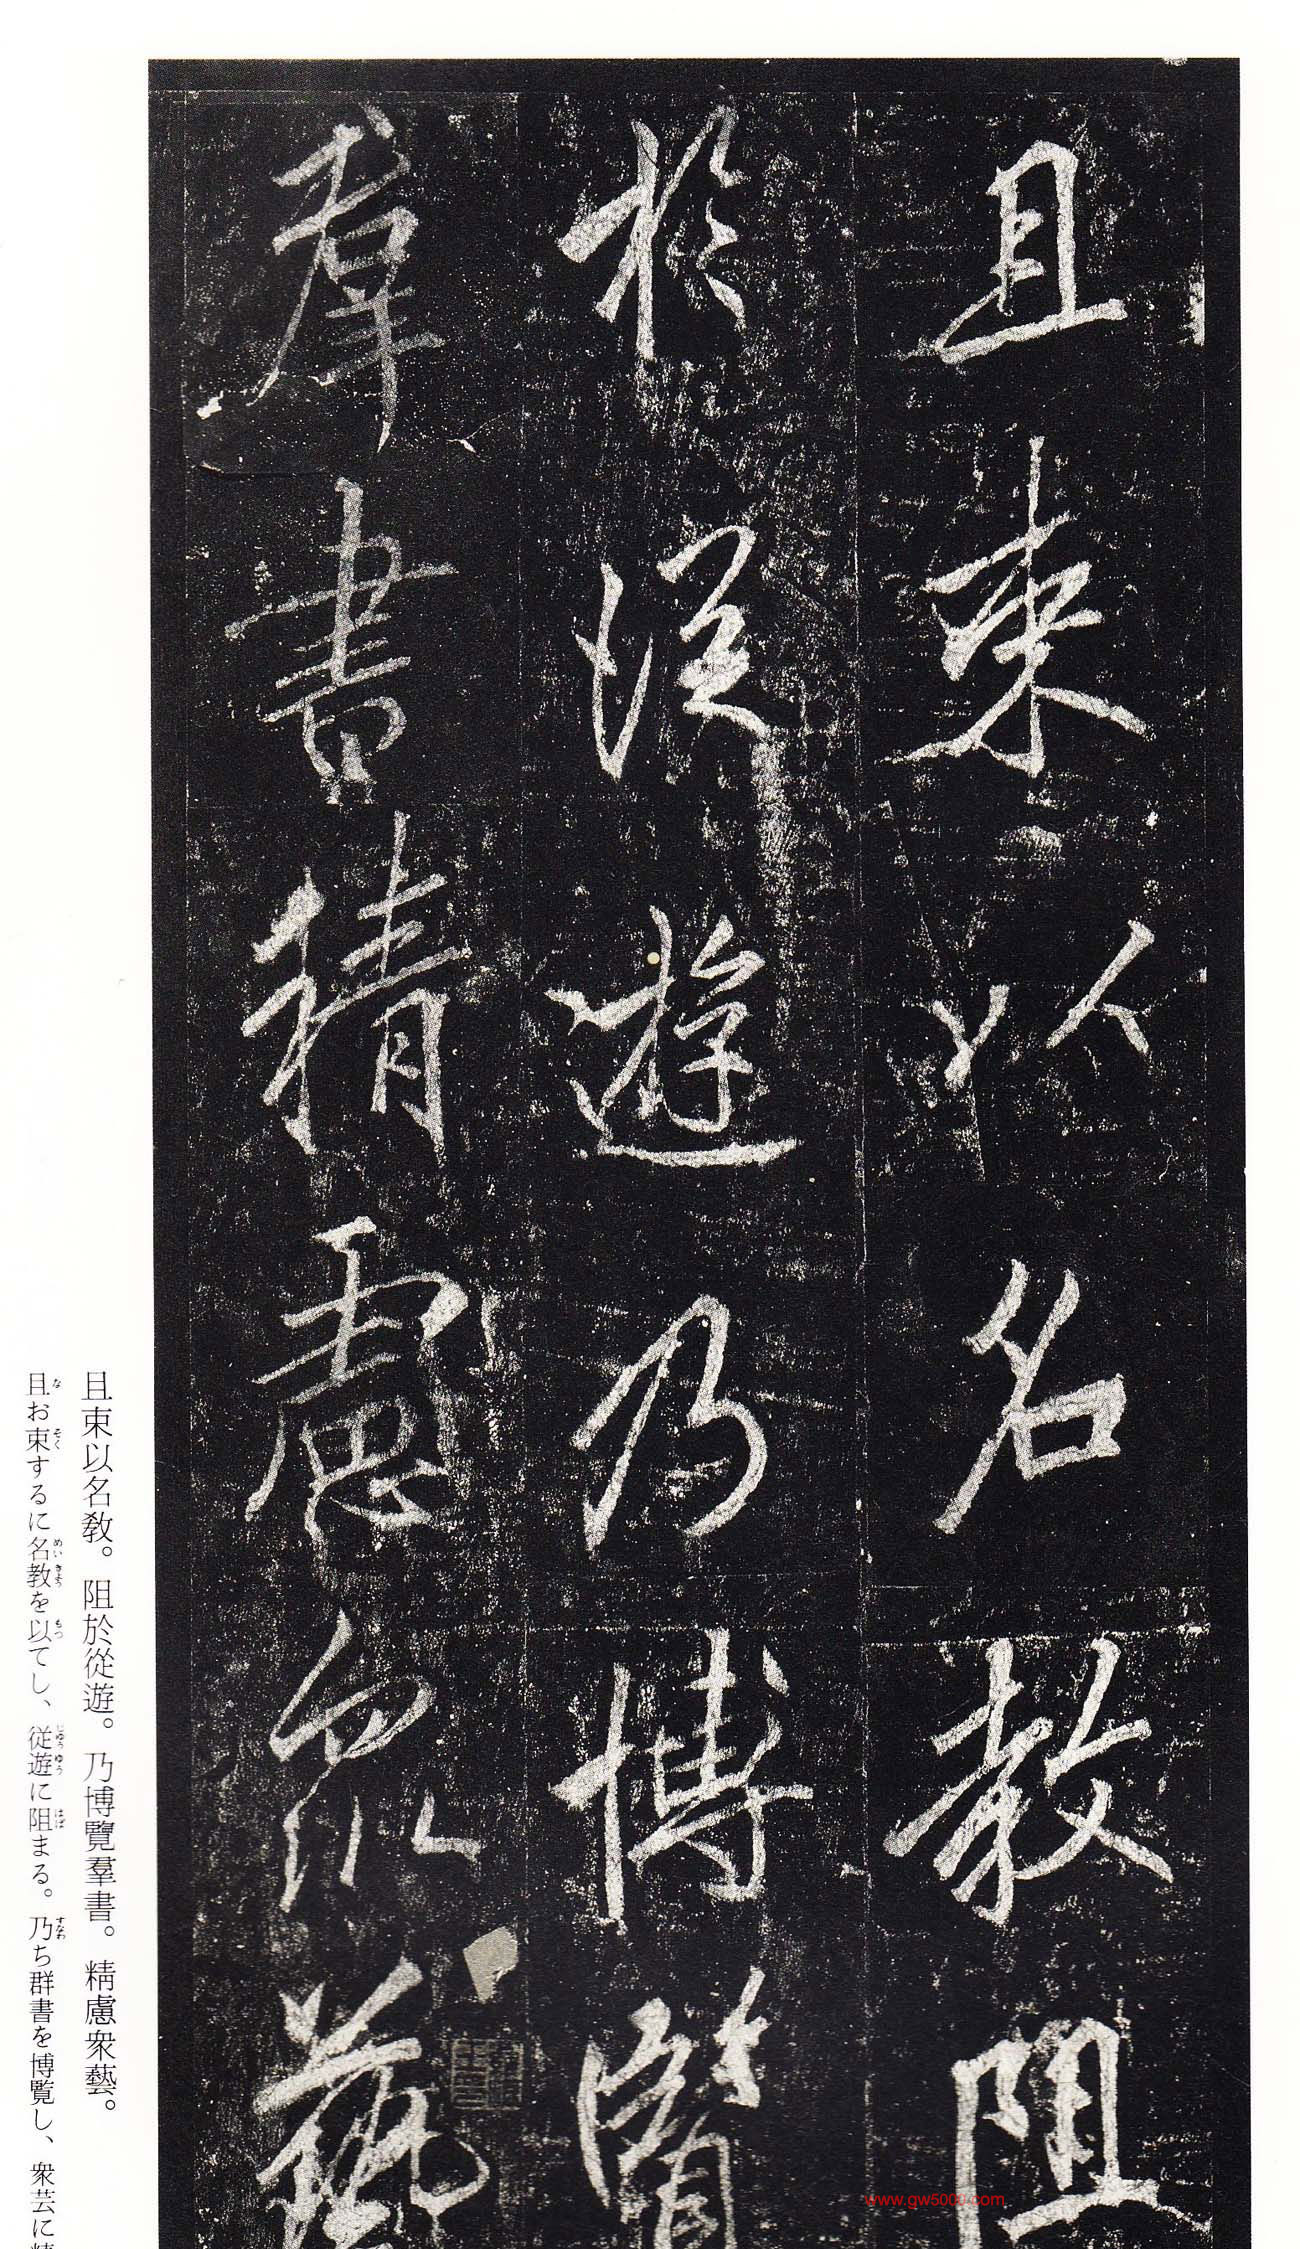 且束以名教阻
於從遊乃博覽
羣書精慮衆藝
且束以名教。阻於從遊。乃博覽羣書。精慮衆藝。
且お束するに名教を以てし、従遊に阻まる。乃ち群書を博覧し、衆芸に精
www.gw5000.com